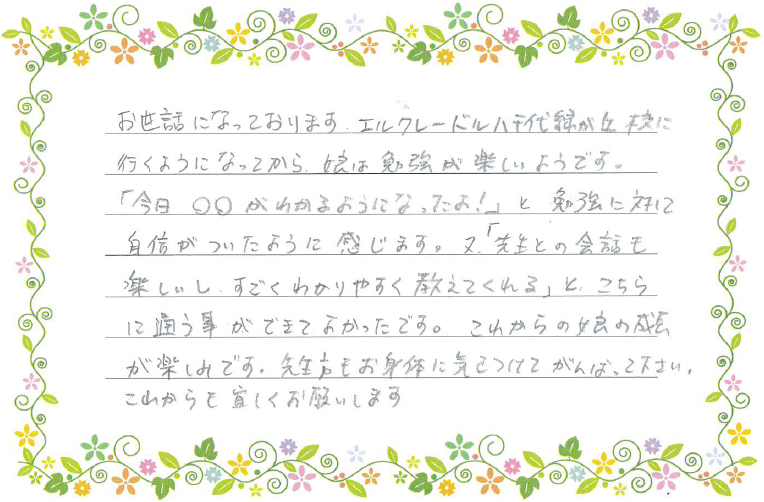 お世話になっております。エルクレードル八千代緑が丘校に
行くようになってから、娘は勉強が楽しいようです。
「今日 〇〇がわかるようになったよ!」と 勉強に対して
自信がついたように感じます。又、「先生との会話も
楽しいし、すごくわかりやすく教えてくれる」と、こちら
に通う事ができてよかったです。これからの娘の成長
が楽しみです。先生方もお身体に気をつけてがんばって下さい。
これからも宜しくお願いします